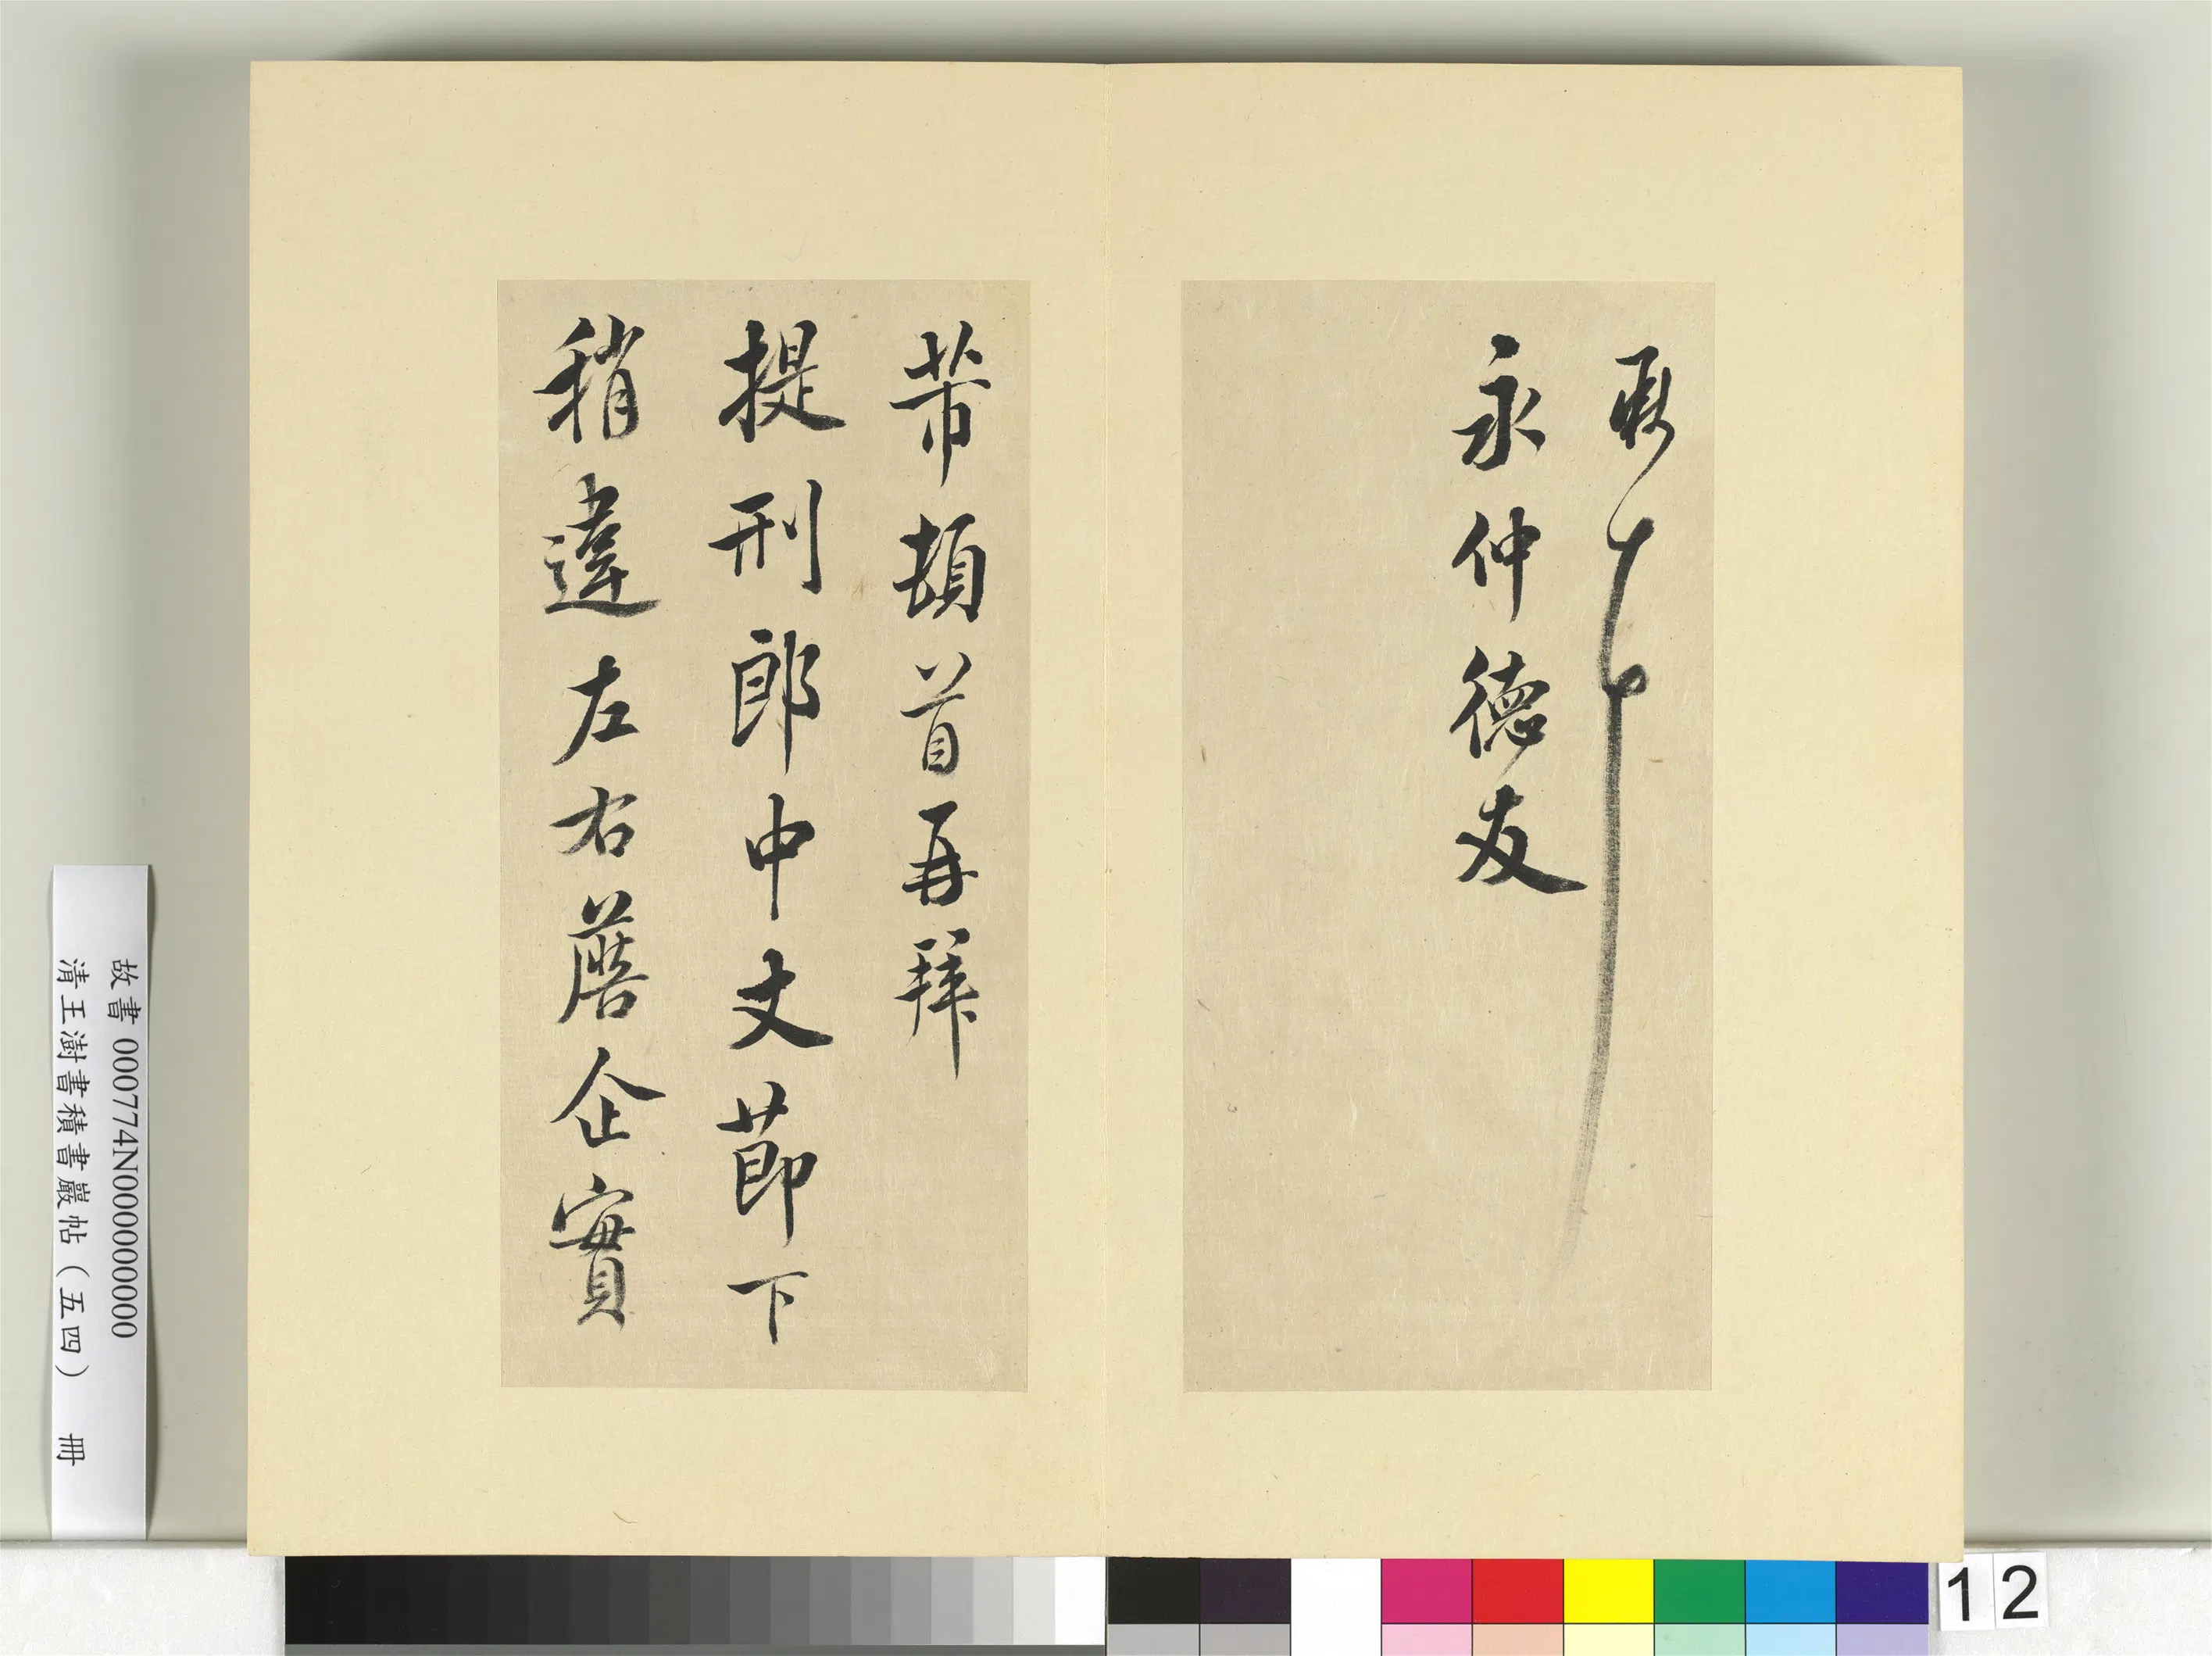 永仲德友
芾頓首再拜
提刑郎中丈節下
稍違左右詹企實
故書 000774N000000000
清王澍書積書巖帖（五四） 冊
12